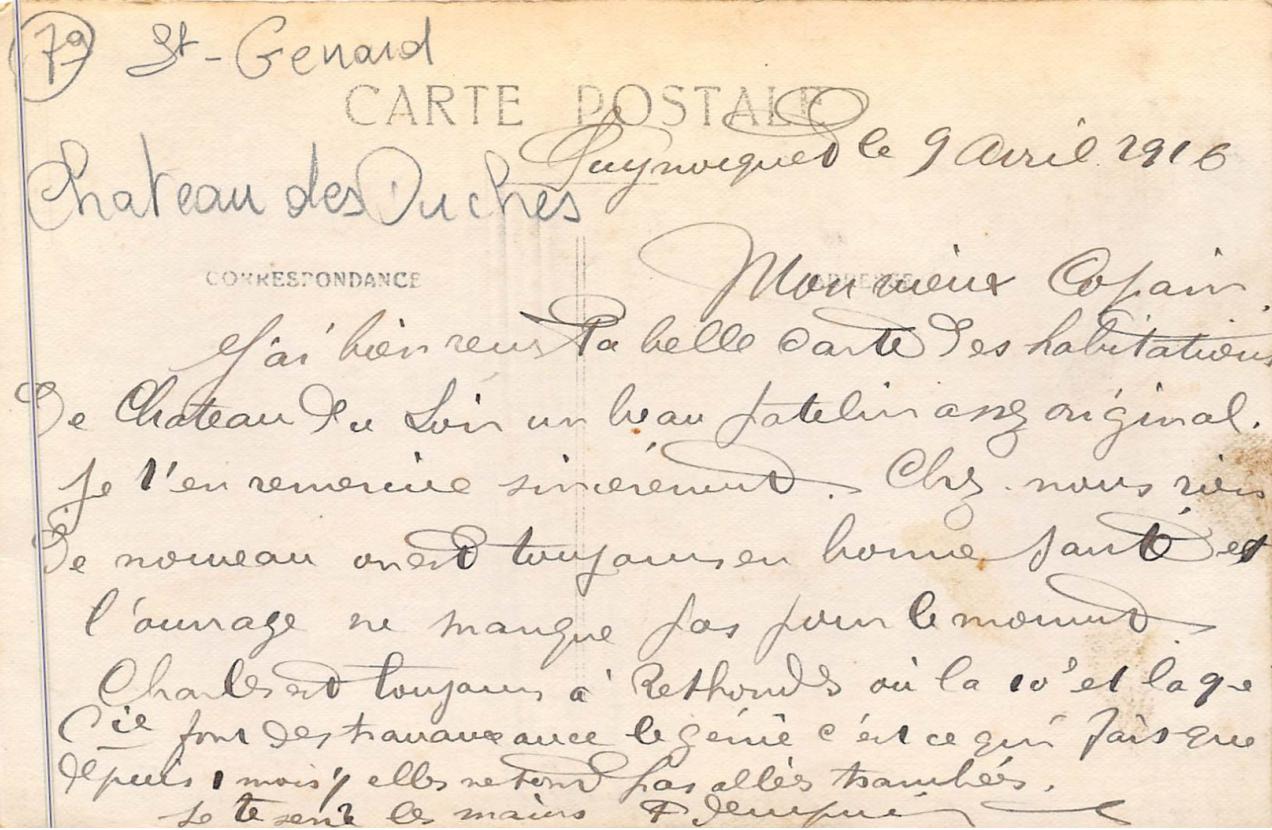 79 St-Genard
CARTE POSTALE
le 9 avril 1916
Chateau des Duches
CORRESPONDANCE
Mon vieux Copain.
J'ai bien reçu ta belle carte des habitations
de Chateau du Loir un beau patelin assez original.
Je t'en remercie sincèrement. Chez nous rien
de nouveau on est toujours en bonne santé et
l'ouvrage ne manque pas pour le moment.
Charles est toujours à Rethondes où la 10e et la 9e
Cie font des travaux avec le génie c'est ce qui fait que
depuis 1 mois ½ elles ne sont pas allés tranchées.
Je te serre les mains